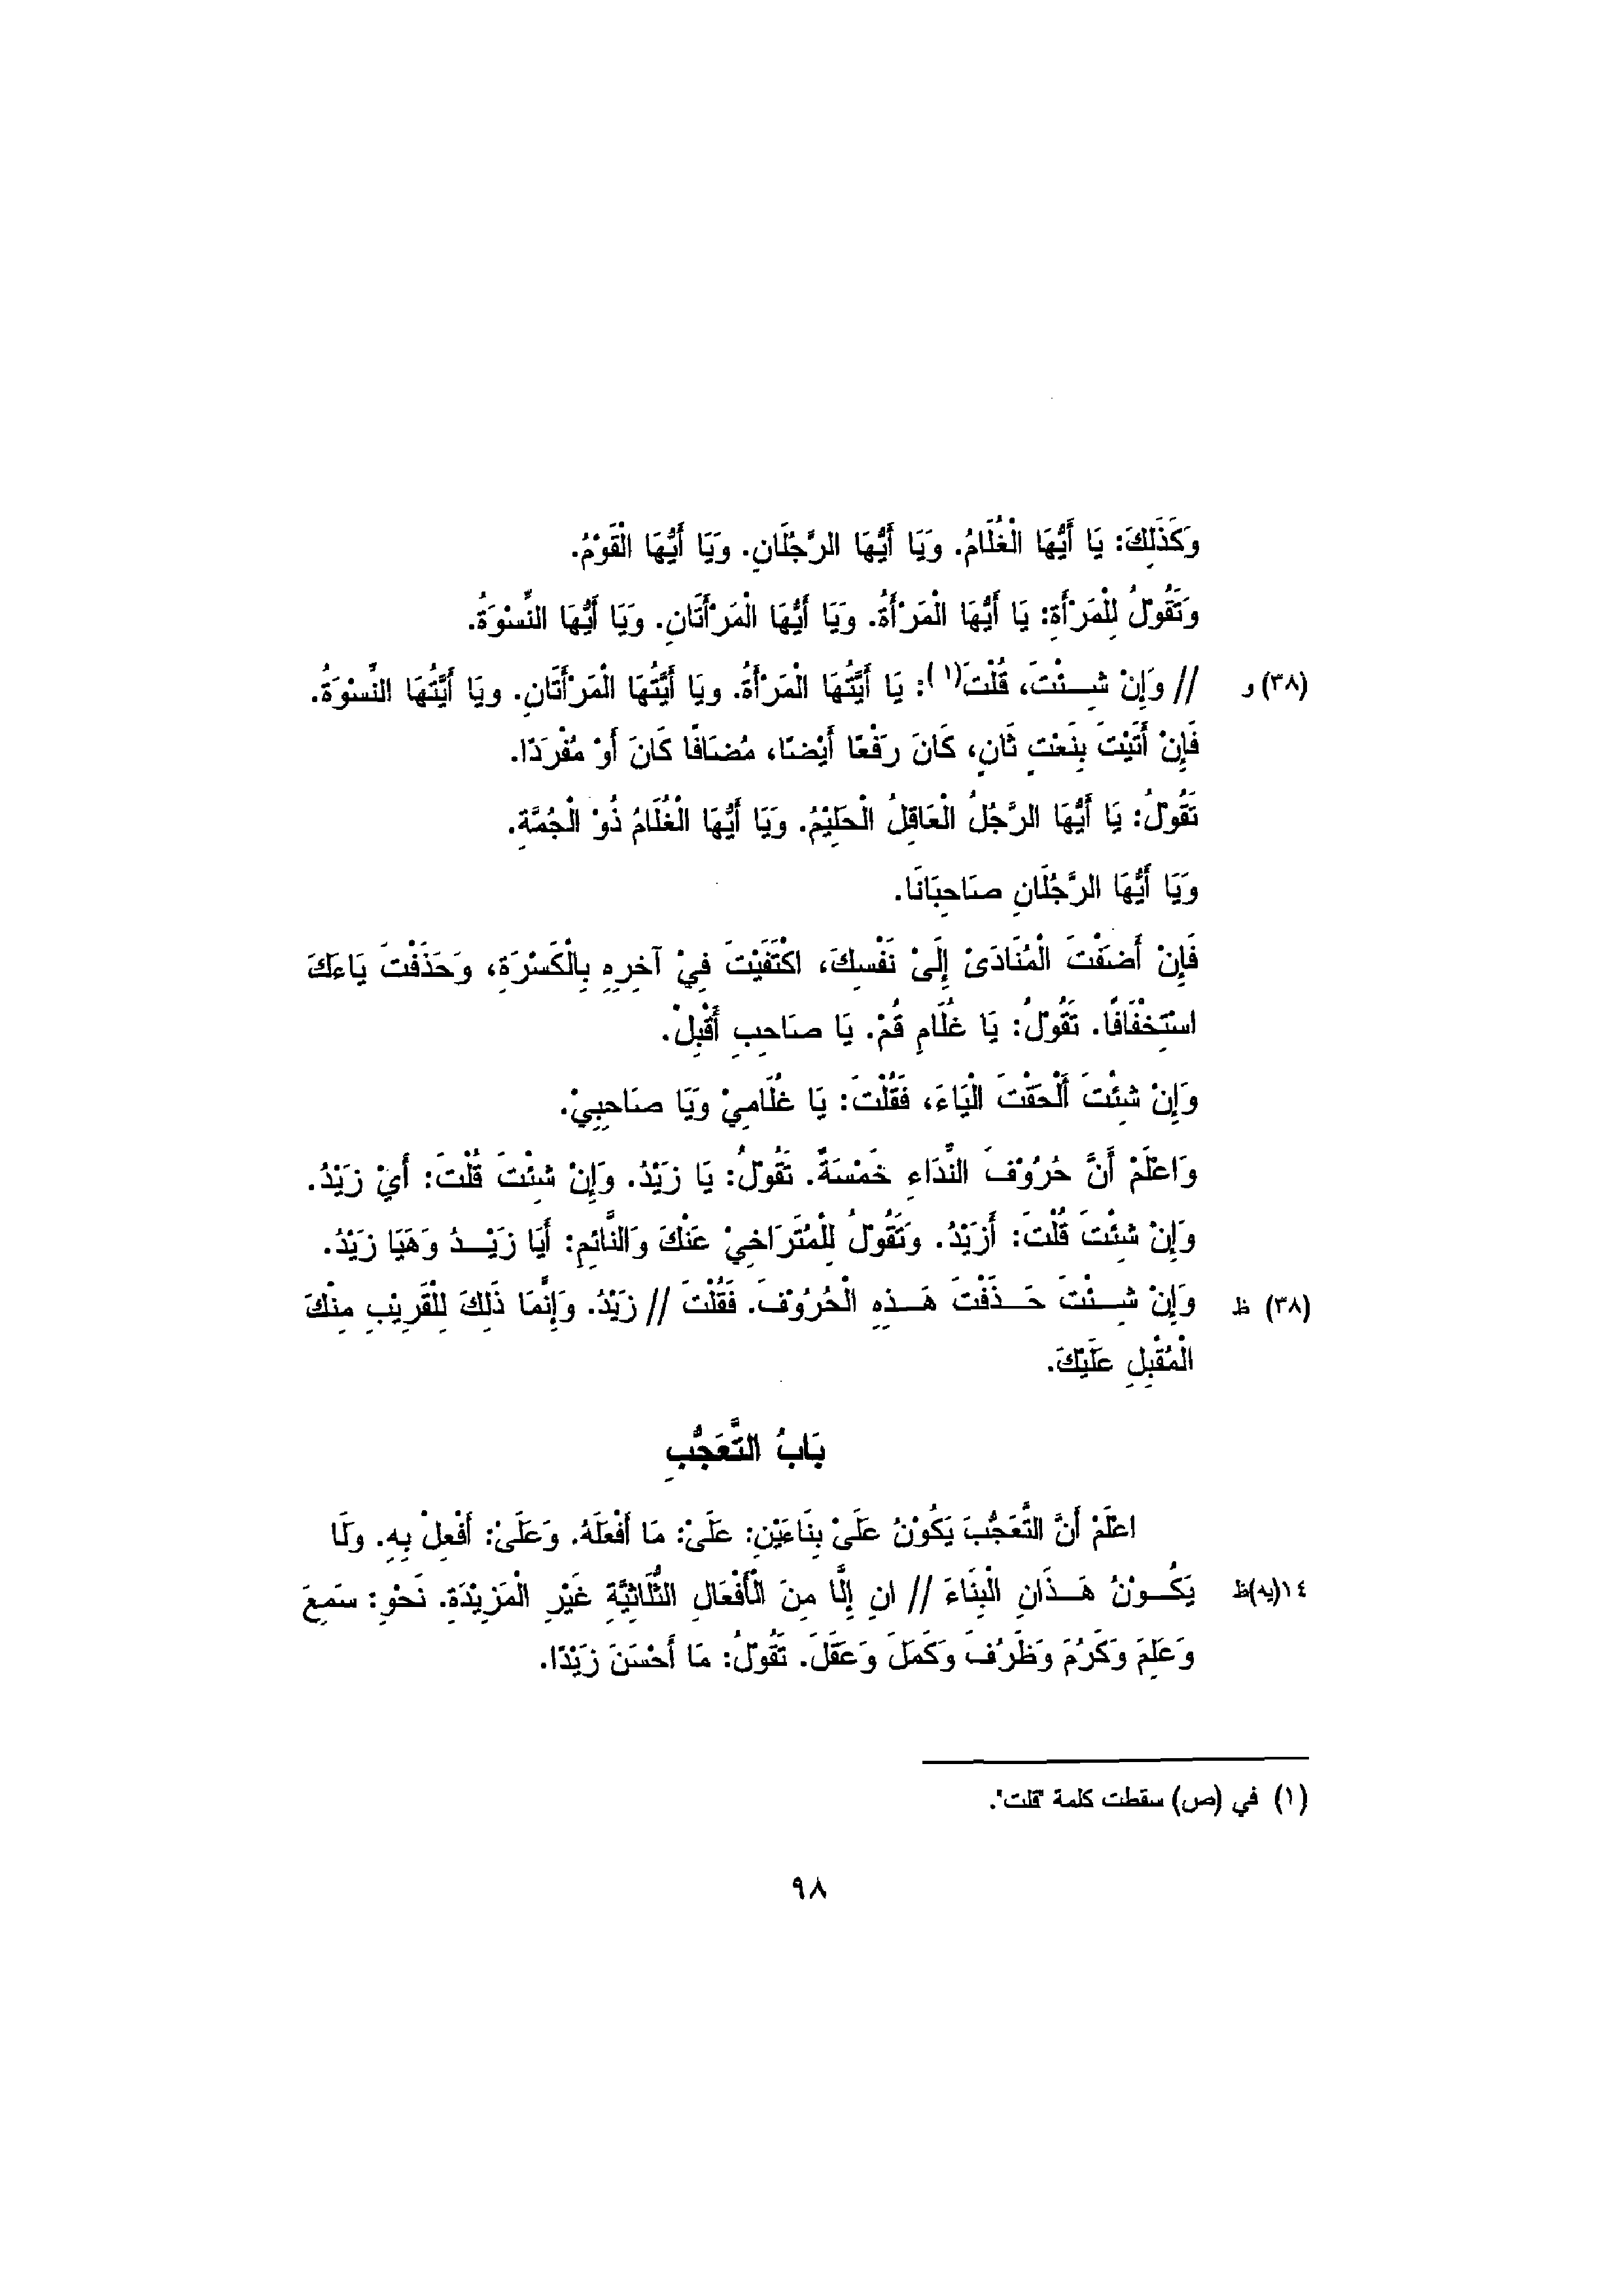 وَكَذَلِكَ: يَا أَيُّهَا الْغُلَامُ. وَيَا أَيُّهَا الرَّجُلَانِ. وَيَا أَيُّهَا الْقَوْمُ.
وَتَقُوْلُ لِلْمَرْأَةِ: يَا أَيُّهَا الْمَرْأَةُ. وَيَا أَيُّهَا الْمَرْأَتَانِ. وَيَا أَيُّهَا النِّسْوَةُ.
(٣٨) و // وَإِنْ شِئْتَ، قُلْتَ(١): يَا أَيَّتُهَا الْمَرْأَةُ. ويَا أَيَّتُهَا الْمَرْأَتَانِ. ويَا أَيَّتُهَا النِّسْوَةُ.
فَإِنْ أَتَيْتَ بِنَعْتٍ ثَانٍ، كَانَ رَفْعًا أَيْضًا، مُضَافًا كَانَ أَوْ مُفْرَدًا.
تَقُوْلُ: يَا أَيُّهَا الرَّجُلُ الْعَاقِلُ الْحَلِيْمُ. وَيَا أَيُّهَا الْغُلَامُ ذُوْ الْجُمَّةِ.
وَيَا أَيُّهَا الرَّجُلَانِ صَاحِبَانَا.
فَإِنْ أَضَفْتَ الْمُنَادَىْ إِلَىْ نَفْسِكَ، اكْتَفَيْتَ فِيْ آخِرِهِ بِالْكَسْرَةِ، وَحَذَفْتَ يَاءَكَ
اسْتِخْفَافًا. تَقُوْلُ: يَا غُلَامِ قُمْ. يَا صَاحِبِ أَقْبِلْ.
وَإِنْ شِئْتَ أَلْحَقْتَ الْيَاءَ، فَقُلْتَ: يَا غُلَامِيْ وَيَا صَاحِبِيْ.
وَاعْلَمْ أَنَّ حُرُوْفَ النِّدَاءِ خَمْسَةٌ. تَقُوْلُ: يَا زَيْدُ. وَإِنْ شِئْتَ قُلْتَ: أَيْ زَيْدُ.
وَإِنْ شِئْتَ قُلْتَ: أَزَيْدُ. وَتَقُوْلُ لِلْمُتَرَاخِيْ عَنْكَ وَالنَّائِمِ: أَيَا زَيْدُ وَهَيَا زَيْدُ.
(٣٨) ظ وَإِنْ شِئْتَ حَذَفْتَ هَذِهِ الْحُرُوْفَ. فَقُلْتَ // زَيْدُ. وَإِنَّمَا ذَلِكَ لِلْقَرِيْبِ مِنْكَ
الْمُقْبِلِ عَلَيْكَ.
بَابُ التَّعَجُّبِ
اعْلَمْ أَنَّ التَّعَجُّبَ يَكُوْنُ عَلَىْ بِنَاءَيْنِ: عَلَىْ: مَا أَفْعَلَهُ. وَعَلَىْ: أَفْعِلْ بِهِ. وَلَا
١٤(يه)ظ يَكُوْنُ هَذَانِ الْبِنَاءَ // انِ إِلَّا مِنَ الْأَفْعَالِ الثُّلَاثِيَّةِ غَيْرِ الْمَزِيْدَةِ. نَحْوِ: سَمِعَ
وَعَلِمَ وَكَرُمَ وَظَرُفَ وَكَمَلَ وَعَقَلَ. تَقُوْلُ: مَا أَحْسَنَ زَيْدًا.
(١) في (ص) سقطت كلمة "قلت".
٩٨